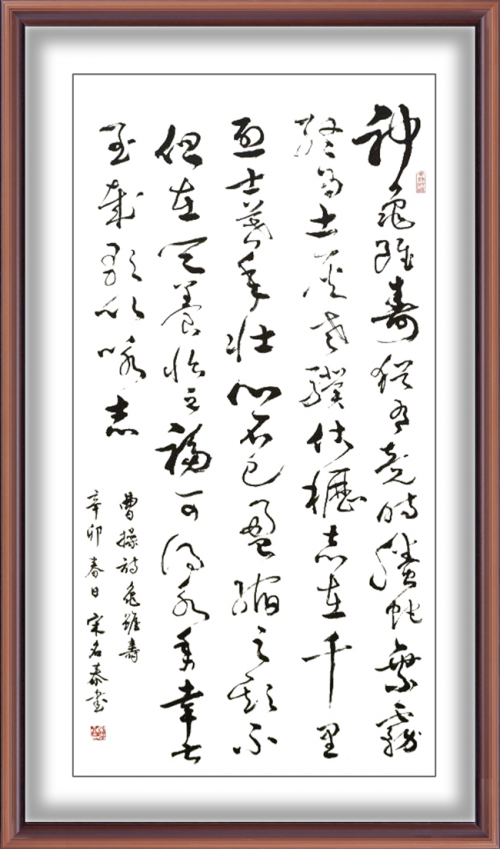 神龜雖壽猶有竟時螣蛇乘霧
終為土灰老驥伏櫪志在千里
烈士暮年壯心不已盈縮之期不
但在天養怡之福可得永年幸甚
至哉歌以咏志
曹操詩龜雖壽
辛卯春日宋名泰書